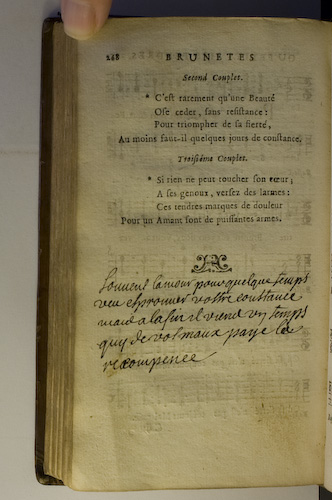 248 BRUNETES
Second Couplet.
* C'est rarement qu'une Beauté
Ose ceder, sans resistance:
Pour triompher de sa fierté,
Au moins faut-il quelques jours de constance.
Troisiéme Couplet.
* Si rien ne peut toucher son cœur;
A ses genoux, versez des larmes:
Ces tendres marques de douleur
Pour un Amant sont de puissantes armes.
souvent lamour pour quelque temps
veu esprouver vostre constance
mais a la fin il viend un temps
quy de vos maux paye la
recompence